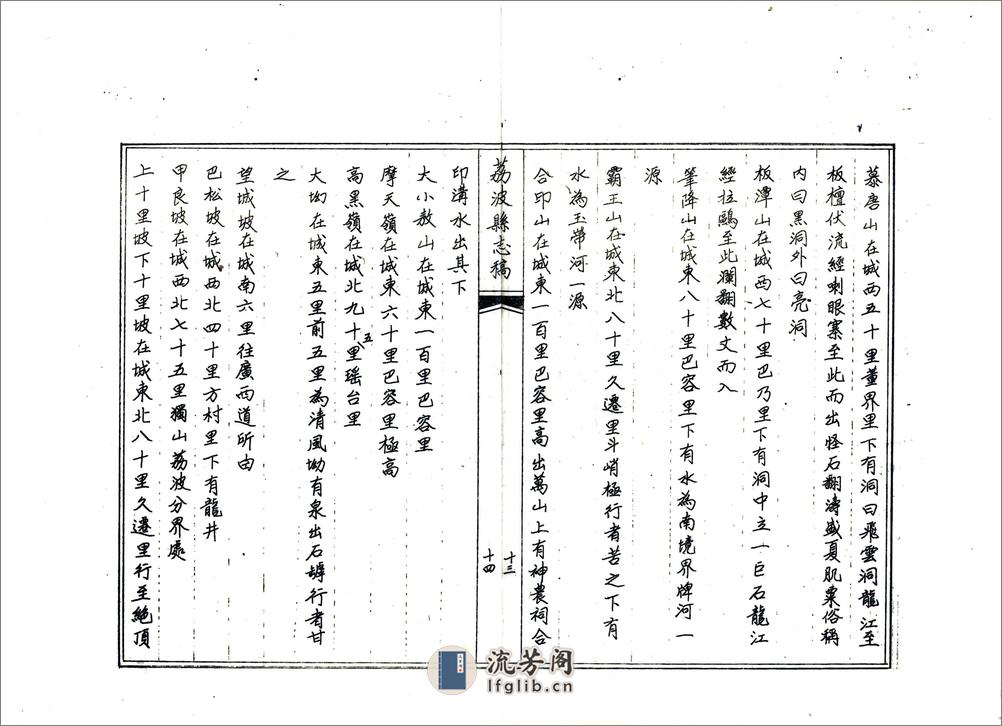 慕唐山在城西五十里董界里下有洞曰飛雲洞龍江至
板檀伏流經喇眼寨至此而出怪石翻濤盛夏肌粟俗稱
內曰黑洞外曰亮洞
板潭山在城西七十里巴乃里下有洞中立一巨石龍江
經拉鷗至此瀾翻數丈而入
筆降山在城東八十里巴容里下有水為南境界牌河一
源
霸王山在城東北八十里久遷里斗峭極行者苦之下有
水為玉帶河一源
合印山在城東一百里巴容里高出萬山上有神農祠合
荔波縣志稿
十三
十四
印溝水出其下
大小敖山在城東一百里巴容里
摩天嶺在城東六十里巴容里極高
高黑嶺在城北九十五里瑶台里
大坳在城東五里前五里為清風坳有泉出石罅行者甘
之
望城坡在城南六里往廣西道所由
巴松坡在城西北四十里方村里下有龍井
甲良坡在城西北七十五里獨山荔波分界處
上十里坡下十里坡在城東北八十里久遷里行至絕頂
流芳阁
lfglib.cn